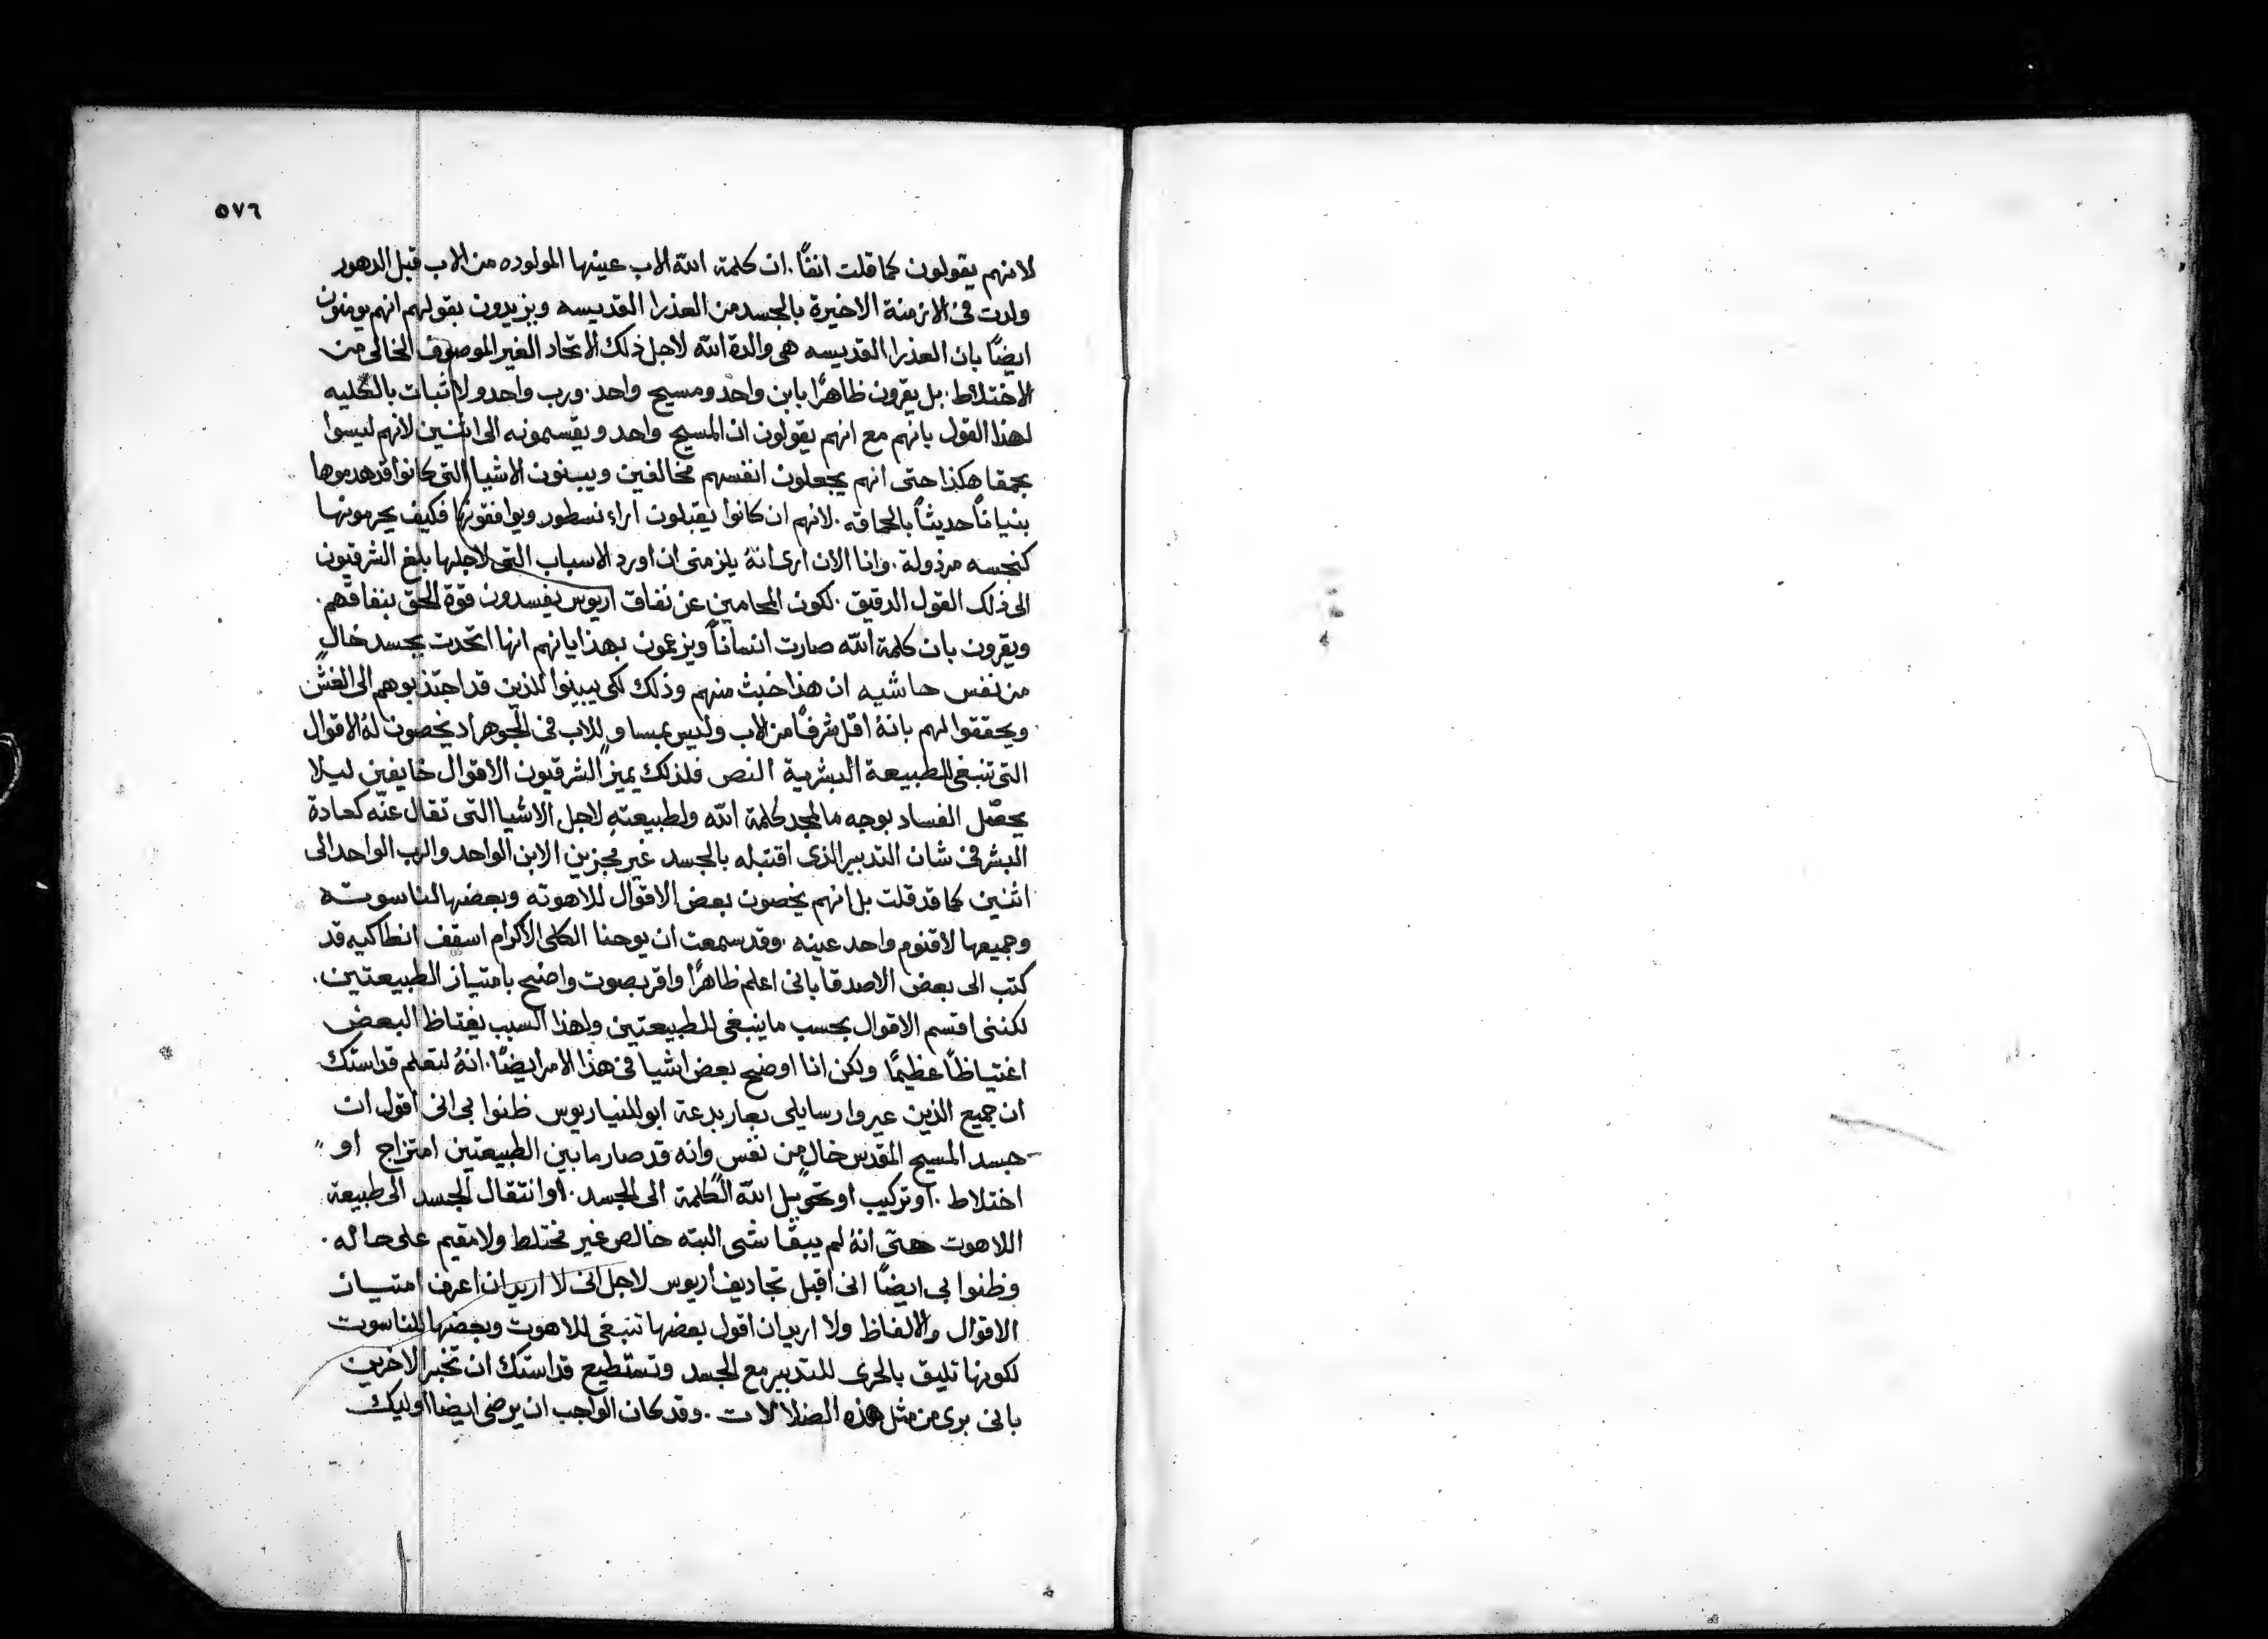 ٥٧٦
لانهم يقولون كما قلت انفًا . ان كلمة الله الاب عينها المولوده من الاب قبل الدهور
ولدت في الازمنة الاخيرة بالجسد من العذرا القديسه ويزيدون بقولهم انهم يومنون
ايضًا بان العذرا القديسه هي والدة الله لاجل ذلك الاتحاد الغير الموصوف الخالي من
الاختلاط . بل يقرون ظاهرًا بابن واحد ومسيح واحد . ورب واحد ولا ثبات بالكليه
لهذا القول بانهم مع انهم يقولون ان المسيح واحد ويقسمونه الى اثنين لانهم ليسوا
بحمقا هكذا حتى انهم يجعلون انفسهم مخالفين ويبنون الاشيا التي كانوا قد هدموها
بنيانًا حديثًا بالحماقه . لانهم ان كانوا يقبلون اراء نسطور ويوافقونها فكيف يحرمونها
كنجسه مرذولة . وانا الان ارى انهُ يلزمني ان اورد الاسباب التي لاجلها بلغ الشرقيون
الى ذلك القول الدقيق . لكون المحامين عن نفاق اريوس يفسدون قوة الحق بنفاقهم .
ويقرون بان كلمة الله صارت انسانًا ويزعمون بهذايانهم انها اتحدت بجسد خالٍ
من نفس حاشيه ان هذا خبث منهم وذلك لكي يبينوا للذين قد اجتذبوهم الى الغش
ويحققوا لهم بانهُ اقل شرفًا من الاب وليس بمساوٍ للاب في الجوهر اد يخصون لهُ الاقوال
التي تنبغي للطبيعة البشرية النص فلذلك يميز الشرقيون الاقوال خايفين ليلا
يحصّل الفساد بوجه ما لمجد كلمة الله ولطبيعتهِ لاجل الاشيا التي تقال عنّه كعادة
البشر في شان التدبير الذي اقتبله بالجسد غير مجزين الابن الواحد والرب الواحد الى
اثنين كما قد قلت بل انهم يخصون بعض الاقوال للاهوته وبعضها لناسوته
وجميعها لاقنوم واحد عينه . وقد سمعت ان يوحنا الكلى الاكرام اسقف انطاكيه قد
كتب الى بعض الاصدقا باني اعلم ظاهرًا واقر بصوت واضح بامتياز الطبيعتين .
لكنني اقسم الاقوال بحسب ما ينبغي للطبيعتين ولهذا السبب يغتاظ البعض
اغتياظًا عظيمًا ولكن انا اوضح بعض اشيا في هذا الامر ايضًا . انهُ لتعلم قداستك
ان جميع الذين عيروا رسايلي بعار بدعة ابوللنياريوس ظنوا بي اني اقول ان
جسد المسيح المقدس خالٍ من نفس وانه قد صار ما بين الطبيعتين امتزاج او
اختلاط . او تركيب او تحويل الله الكلمة الى الجسد . او انتقال الجسد الى طبيعة
اللاهوت حتى انهُ لم يبقا شى البته خالص غير مختلط ولا مقيم على حاله .
وظنوا بي ايضًا اني اقبل تجاديف اريوس لاجل اني لا اريد ان اعرف امتياز
الاقوال والالفاظ ولا اريد ان اقول بعضها تنبغي للاهوت وبعضها للناسوت
لكونها تليق بالحرى للتدبير مع الجسد وتستطيع قداستك ان تخبر الاخرين
باني برى من مثل هذه الضلالات . وقد كان الواجب ان يرضى ايضا اوليك